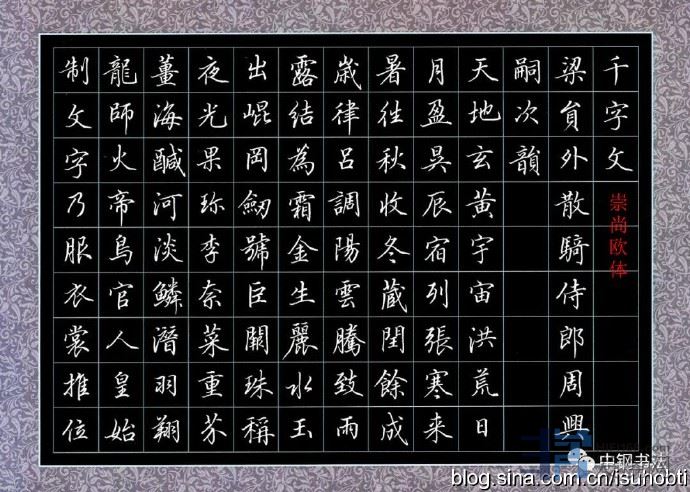 千字文
崇尚欧体
梁員外散騎侍郎周興
嗣次韻
天地玄黄宇宙洪荒日
月盈昃辰宿列張寒来
暑往秋收冬蔵閏餘成
歳律吕調陽雲騰致雨
露結為霜金生麗水玉
出崐岡劒號巨闕珠稱
夜光果珎李柰菜重芥
薑海醎河淡鱗潛羽翔
龍師火帝鳥官人皇始
制文字乃服衣裳推位
中钢书法
blog.sina.com.cn/isunobti